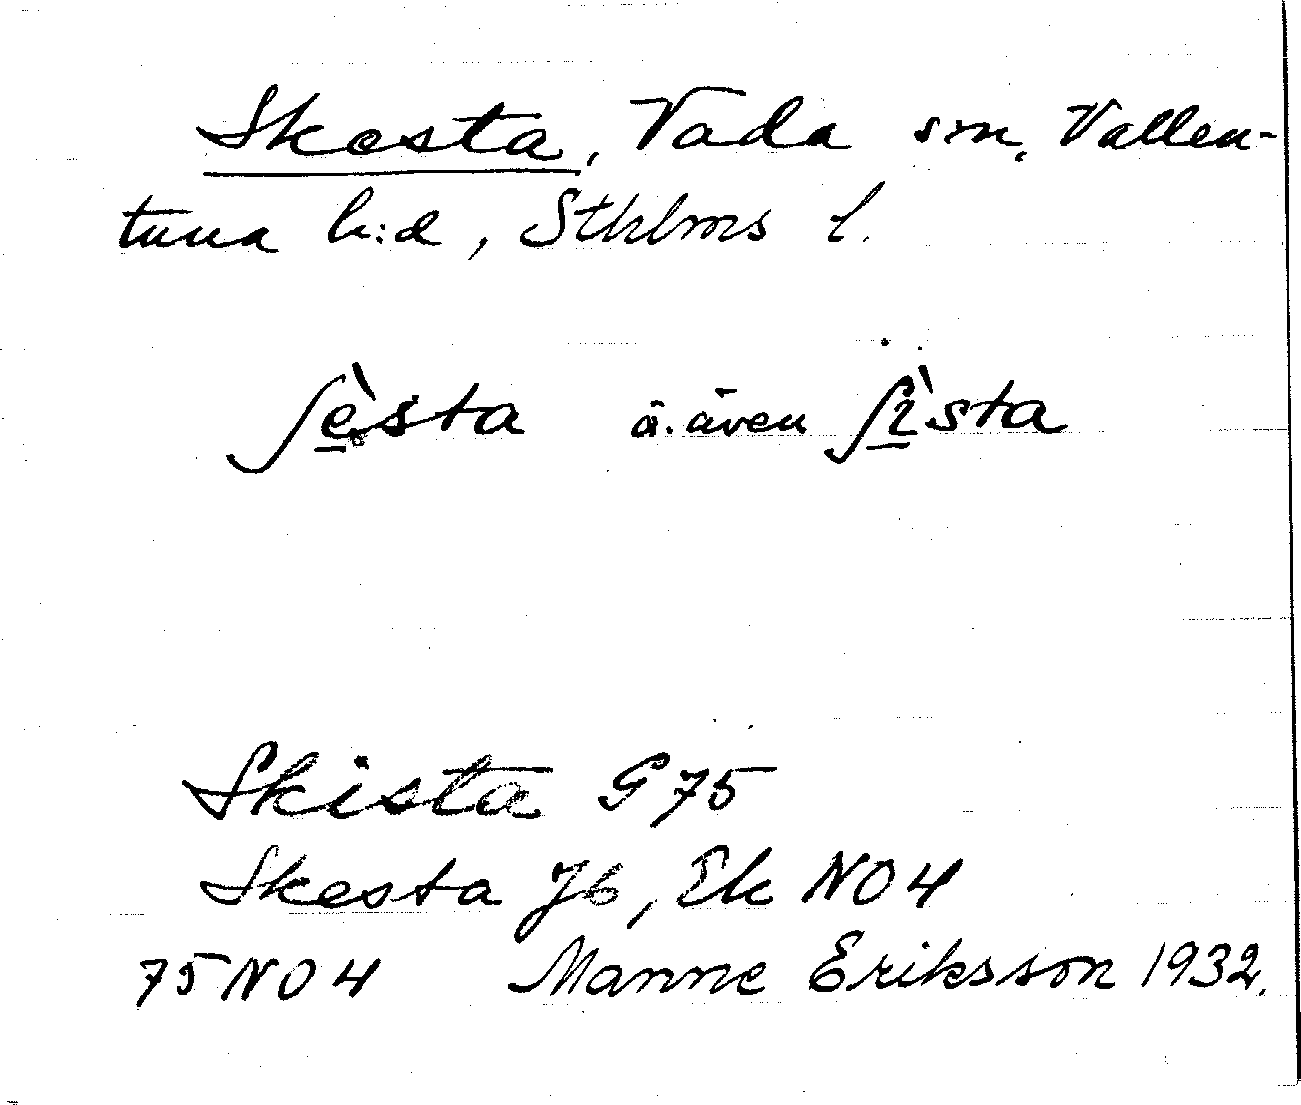 Skesta, Vada sn, Vallen-
tuna h:d, Sthlms l.
ʃè̠sta ä. även ʃɪ̠̀sta
Skista G 75
Skesta Jb, Ek NO4
75NO4 Manne Eriksson 1932.